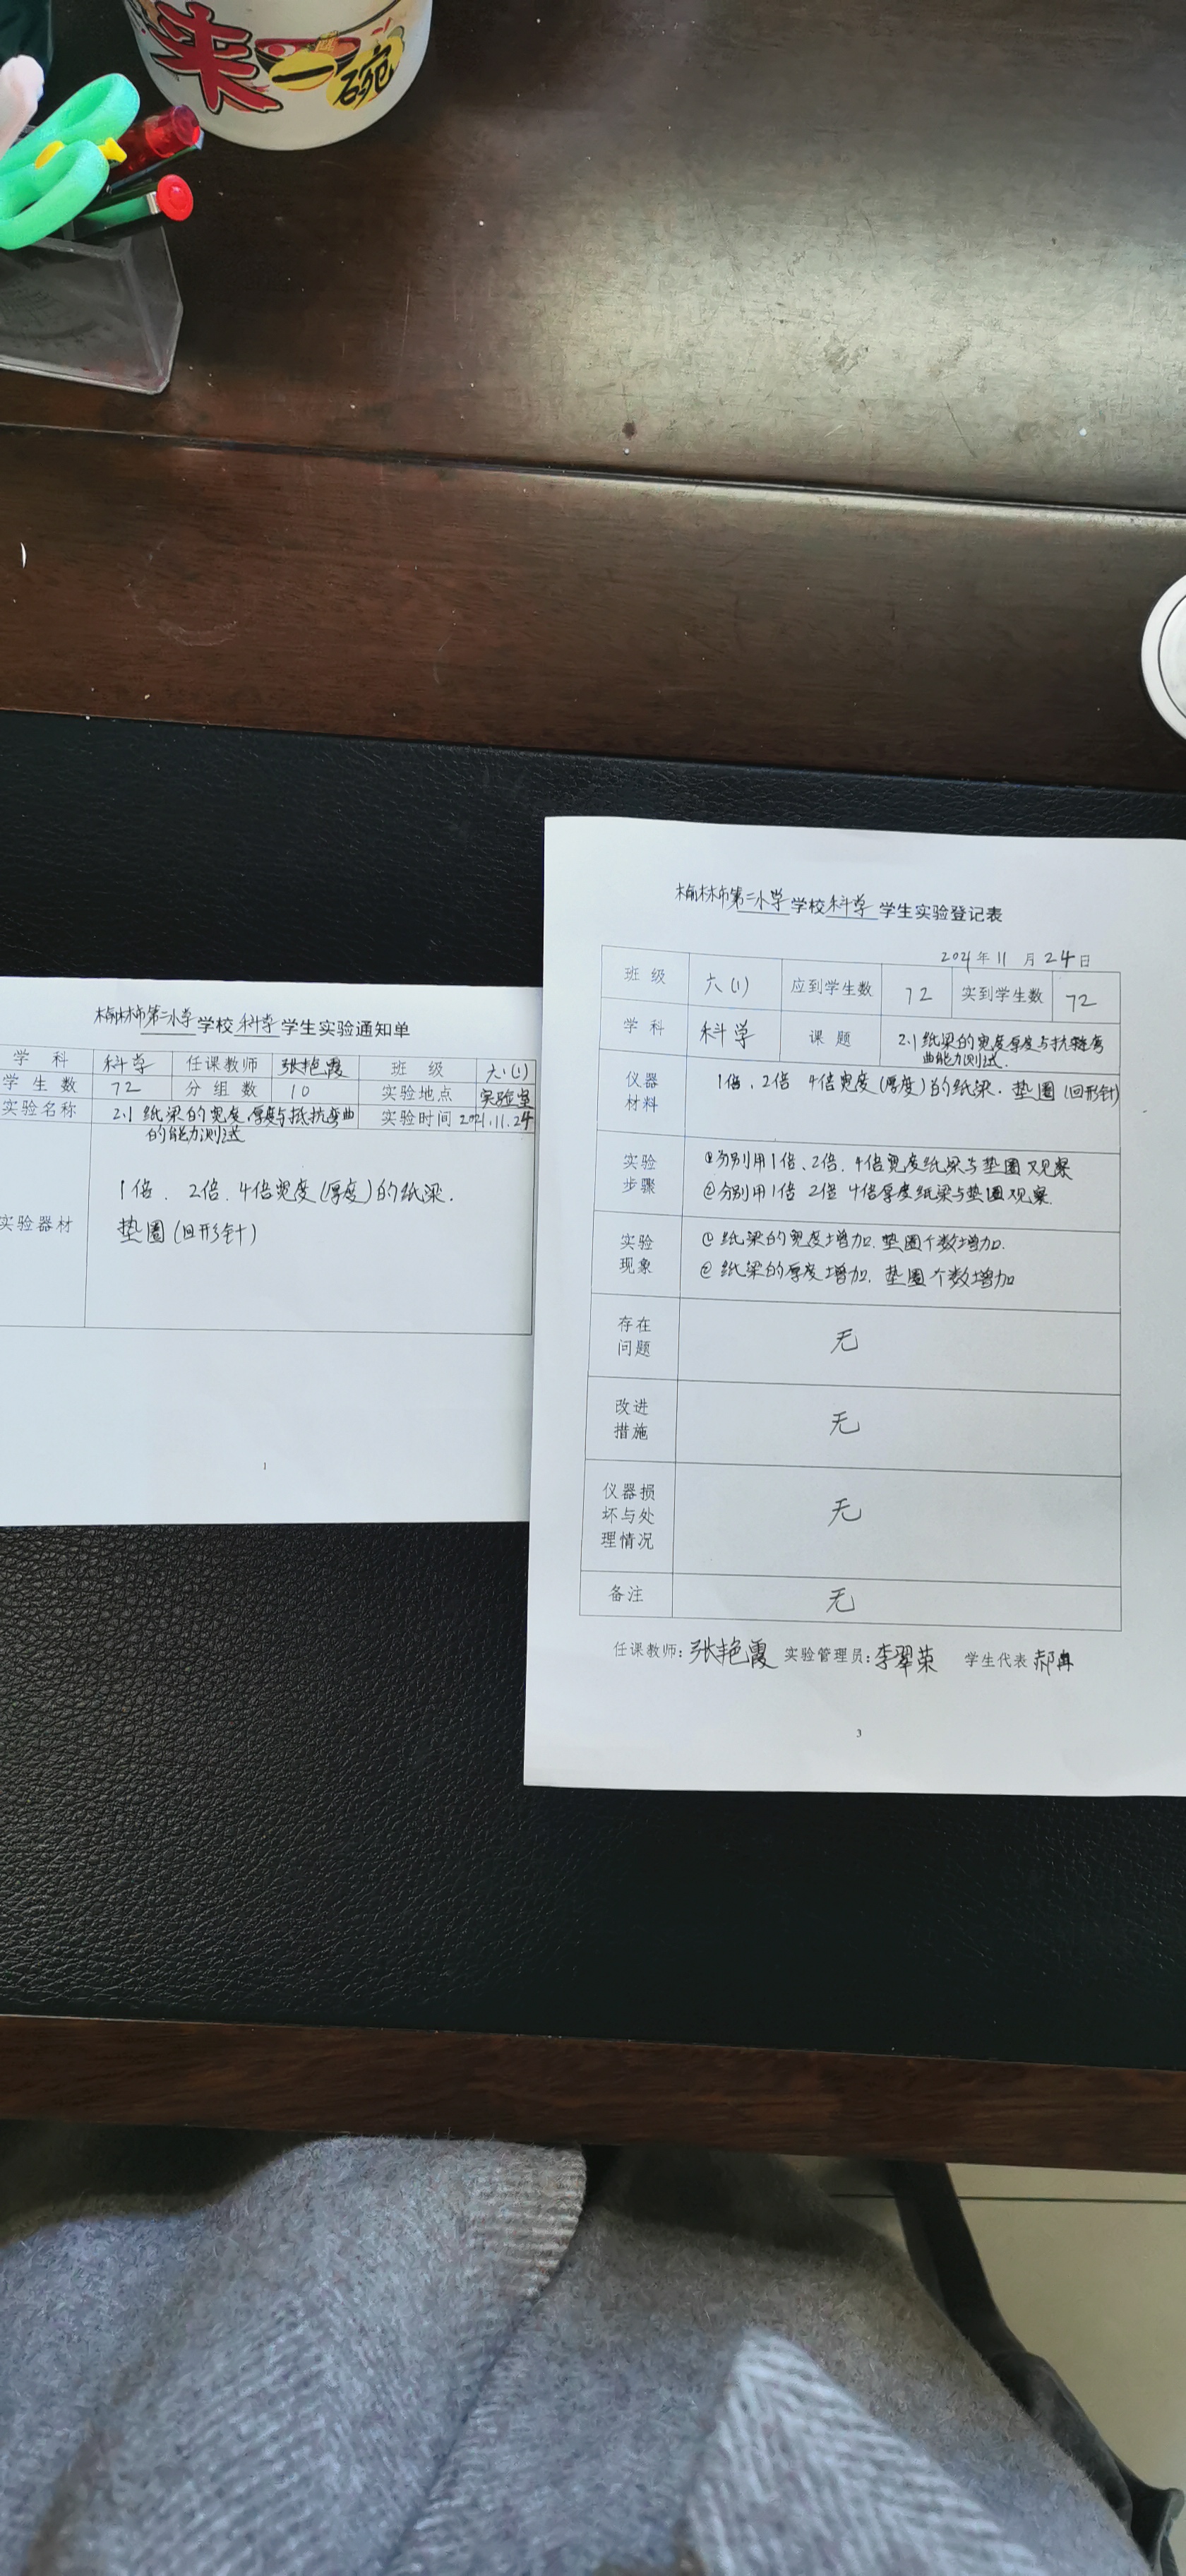 来一碗
榆林市第二小学学校科学学生实验通知单
学 科 科学 任课教师 张艳霞 班 级 六(1)
学 生 数 72 分 组 数 10 实验地点 实验室
实验名称 2.1 纸梁的宽度厚度与抵抗弯曲 实验时间 2021.11.24
的能力测试
1倍、2倍.4倍宽度(厚度)的纸梁.
实验器材 垫圈(回形针)
1
榆林市第二小学学校科学学生实验登记表
2021年11月24日
班 级 六(1) 应到学生数 72 实到学生数 72
学 科 科学 课 题 2.1纸梁的宽度厚度与抗弯
曲能力测试.
仪器 1倍、2倍 4倍宽度(厚度)的纸梁.垫圈(回形针)
材料
实验 ①分别用1倍、2倍.4倍宽度纸梁与垫圈观察
步骤 ②分别用1倍 2倍 4倍厚度纸梁与垫圈观察.
实验 ①纸梁的宽度增加.垫圈个数增加.
现象 ②纸梁的厚度增加.垫圈个数增加
存在
问题 无
改进
措施 无
仪器损
坏与处 无
理情况
备注 无
任课教师:张艳霞 实验管理员:李翠荣 学生代表 郝冉
3